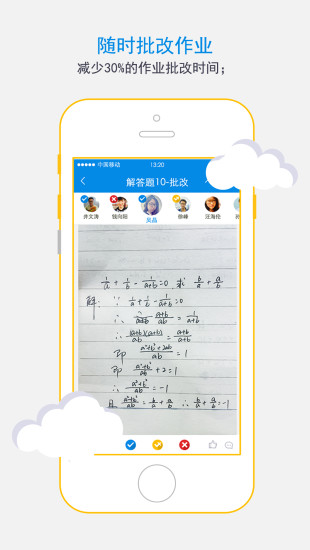 随时批改作业
减少30%的作业批改时间；
中国移动 13:20
解答题10-批改
许文涛 钱向阳 吴晶 徐峰 汪海伦
1/a + 1/b - 1/(a+b) = 0 求 b/a + a/b
解： ∵ 1/a + 1/b - 1/(a+b) = 0
∴ (a+b)/ab = 1/(a+b)
∴ (a+b)(a+b)/ab = (a+b)/(a+b)
即 (a²+b²+2ab)/ab = 1
即 (a²+b²)/ab + 2 = 1
∴ (a²+b²)/ab = -1
且 (a²+b²)/ab = a/b + b/a ∴ b/a + a/b = -1